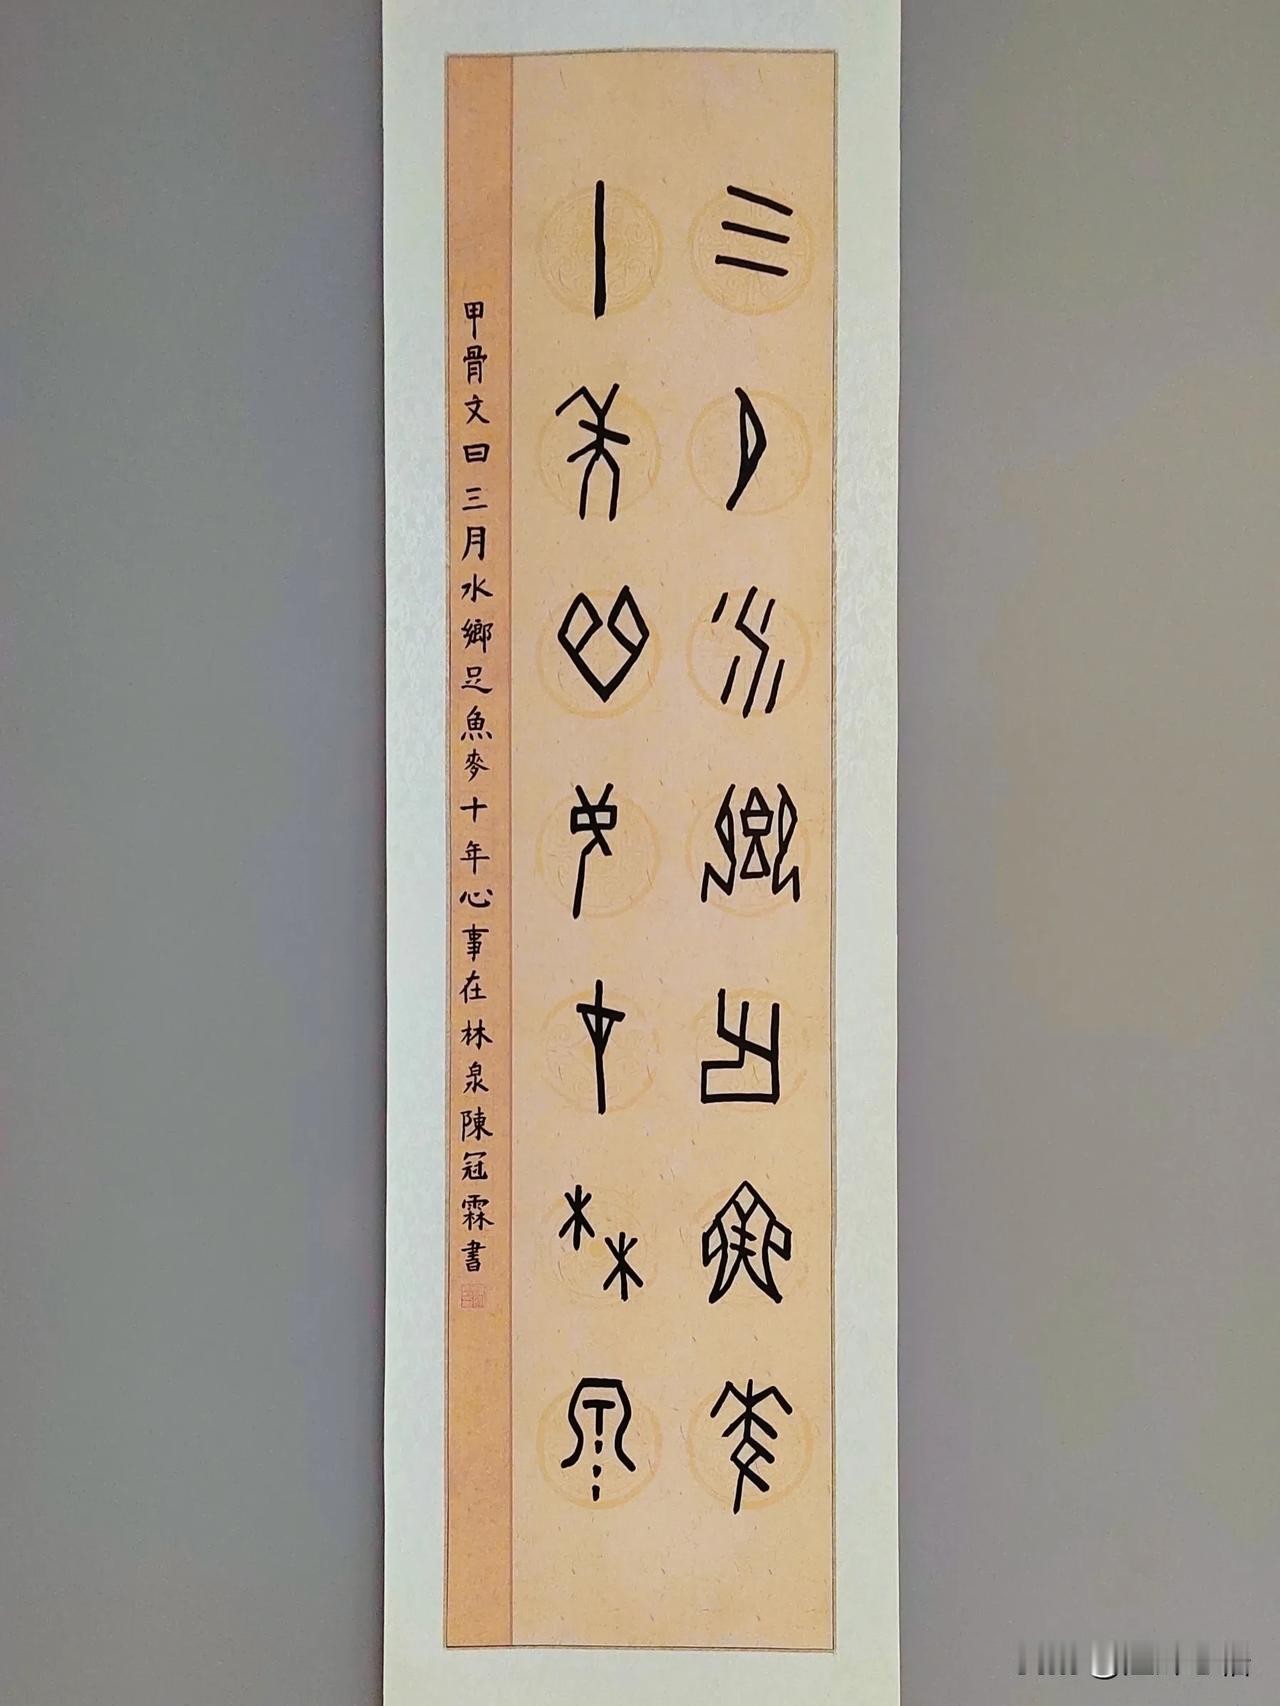 三月水鄉足魚麥
十年心事在林泉
甲骨文曰三月水鄉足魚麥十年心事在林泉陳冠霖書